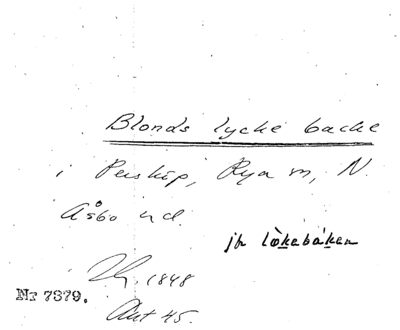 Blonds lycke backe
i Perstorp, Rya sn, N.
Åsbo hd.
jfr lø̀kebáken
1848
Nr 7379.
Akt 45.